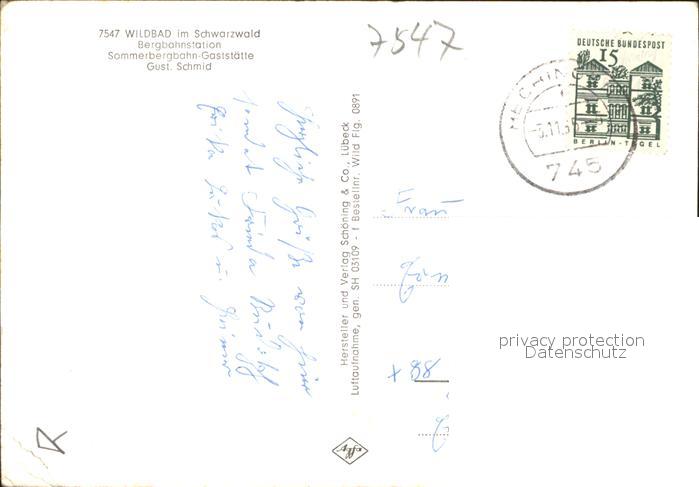 7547 WILDBAD im Schwarzwald
Bergbahnstation
Sommerbergbahn-Gaststätte
Gust. Schmid
7547
DEUTSCHE BUNDESPOST
15
BERLIN-TEGEL
HECHING
745
Herzliche Grüße von hier
sendet
Hersteller und Verlag Schöning & Co., Lübeck
Luftaufnahme, gen. SH 03109 - 1 Bestellnr. Wild Flg. 0891
Frau
+ 88
Agfa
privacy protection
Datenschutz